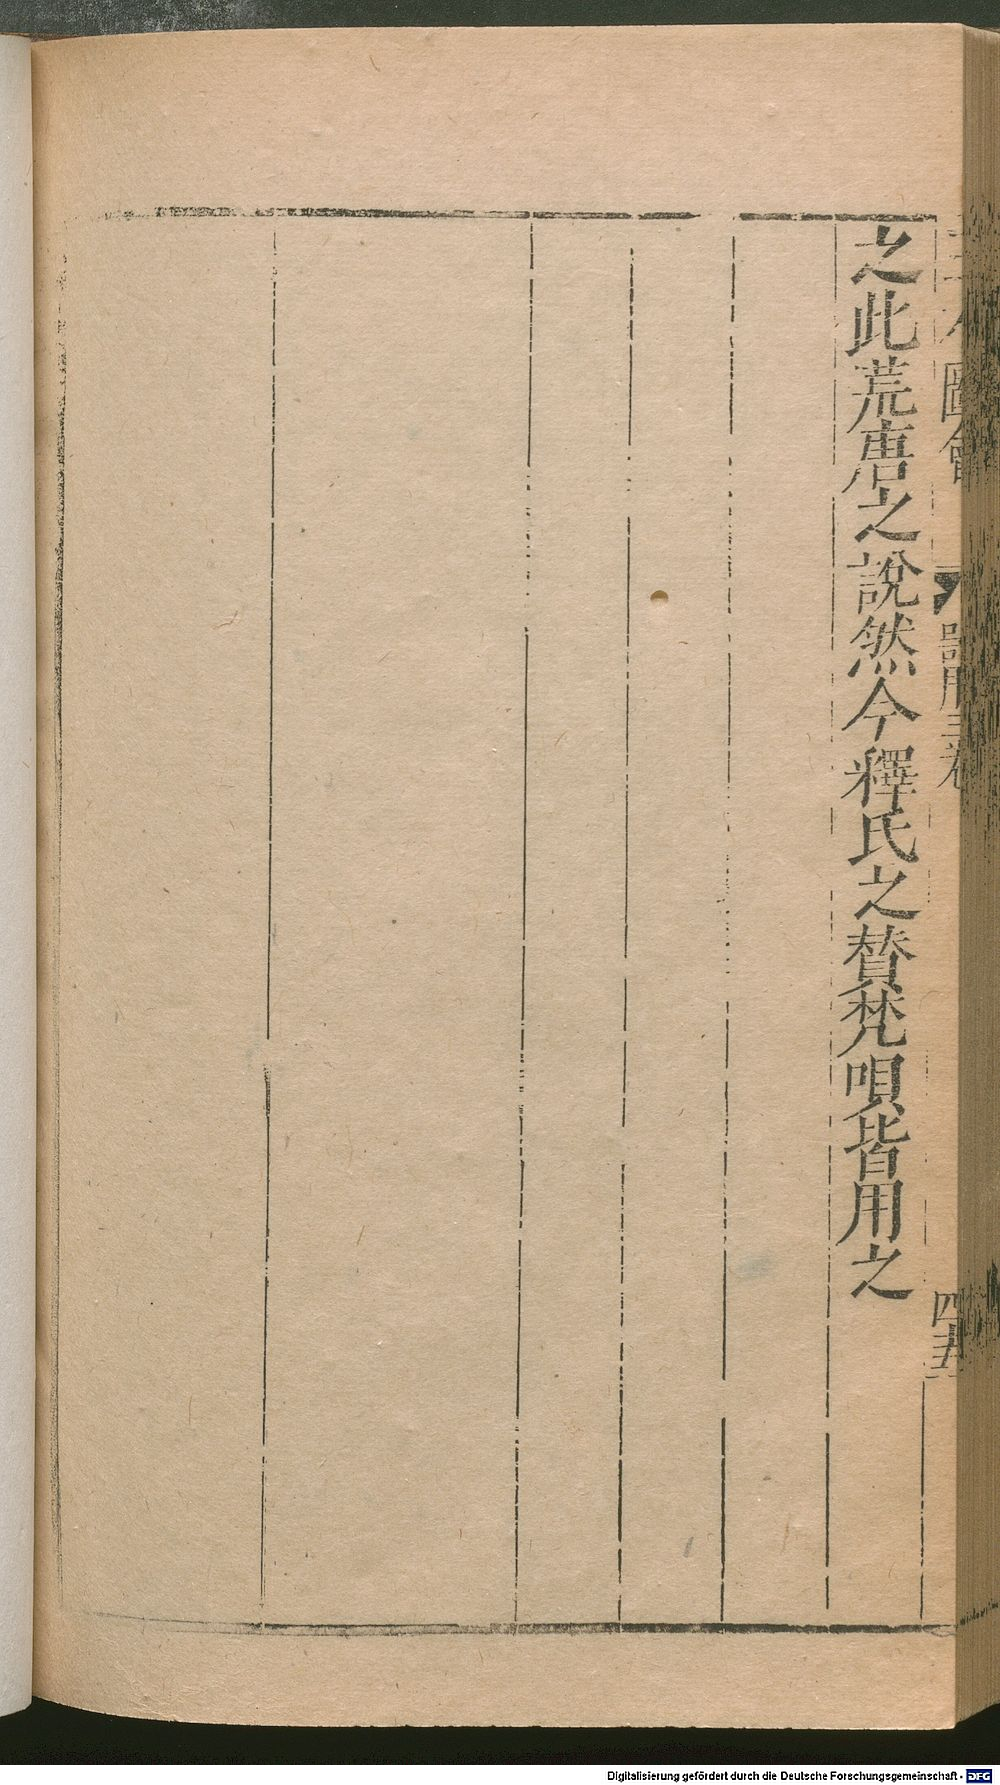 三才圖會
器用三卷
四五
之此荒唐之說然今釋氏之贊梵唄皆用之
Digitalisierung gefördert durch die Deutsche Forschungsgemeinschaft - DFG